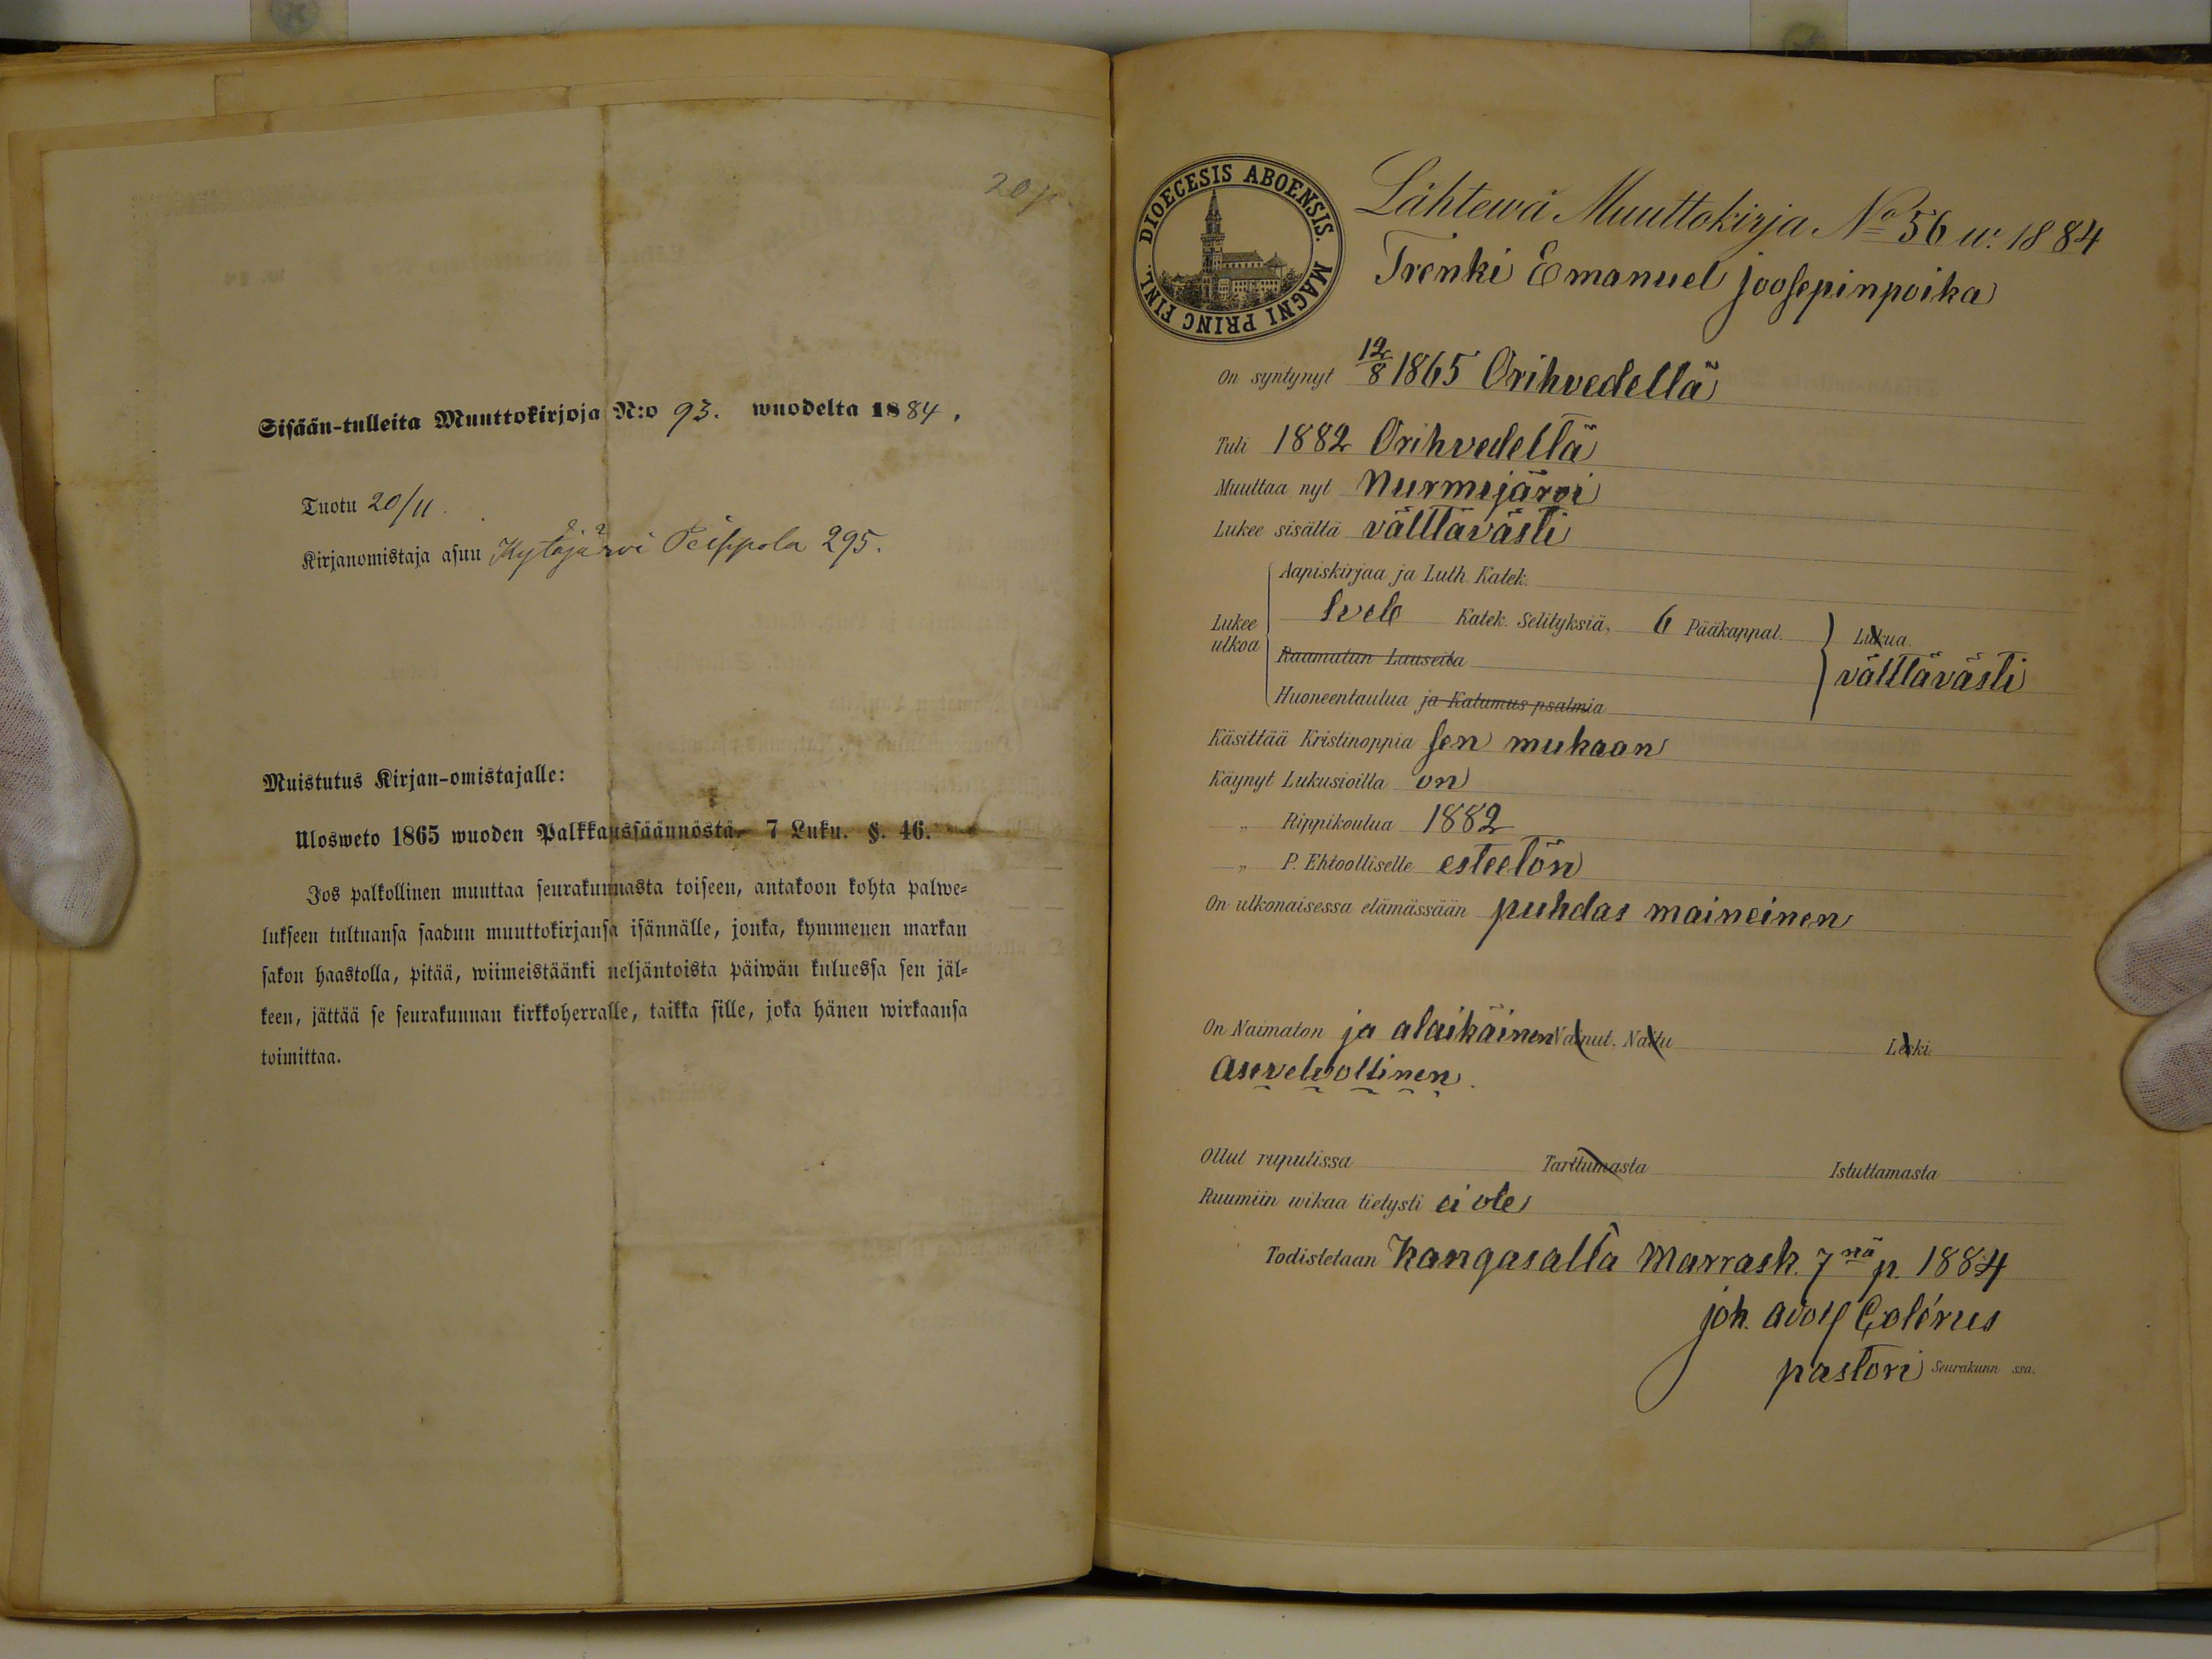 20/11.
Sisään-tulleita Muuttokirjoja N:o 93. wuodelta 1884.
Tuotu 20/11.
Kirjanomistaja asuu Kytäjärvi Peippola 295.
Muistutus Kirjan-omistajalle:
Ulosweto 1865 wuoden Palkkaussäännöstä, 7 Luku. §. 46.
Jos palkollinen muuttaa seurakunnasta toiseen, antakoon kohta palwe-
lukseen tultuansa saadun muuttokirjansa isännälle, jonka, kymmenen markan
sakon haastolla, pitää, wiimeistäänki neljäntoista päiwän kuluessa sen jäl-
keen, jättää se seurakunnan kirkkoherralle, taikka sille, joka hänen wirkaansa
toimittaa.
DIOECESIS ABOENSIS. MAGNI PRINC FINL.
Lähtewä Muuttokirja No 56 w. 1884
Trenki Emanuel Joosepinpoika
On syntynyt 12/8 1865 Orihvedellä
Tuli 1882 Orihvedeltä
Muuttaa nyt Nurmijärvi
Lukee sisältä välttävästi
Aapiskirjaa ja Luth. Katek.
Lukee ulkoa Sveb Katek. Selityksiä, 6 Pääkappal. Lukua.
Raamatun Lauseita välttävästi
Huoneentaulua ja Katumus psalmia
Käsittää Kristinoppia sen mukaan
Käynyt Lukusioilla on
„ Rippikoulua 1882
„ P. Ehtoolliselle esteetön
On ulkonaisessa elämässään puhdas maineinen
On Naimaton ja alaikäinen Nainut. Naitu Leski.
Asevelvollinen.
Ollut rupulissa Tarttumasta Istuttamasta
Ruumiin wikaa tietysti ei ole
Todistetaan Kangasalla Marrask. 7nä p. 1884
Joh. Adolf Colérus
pastori Seurakunn ssa.